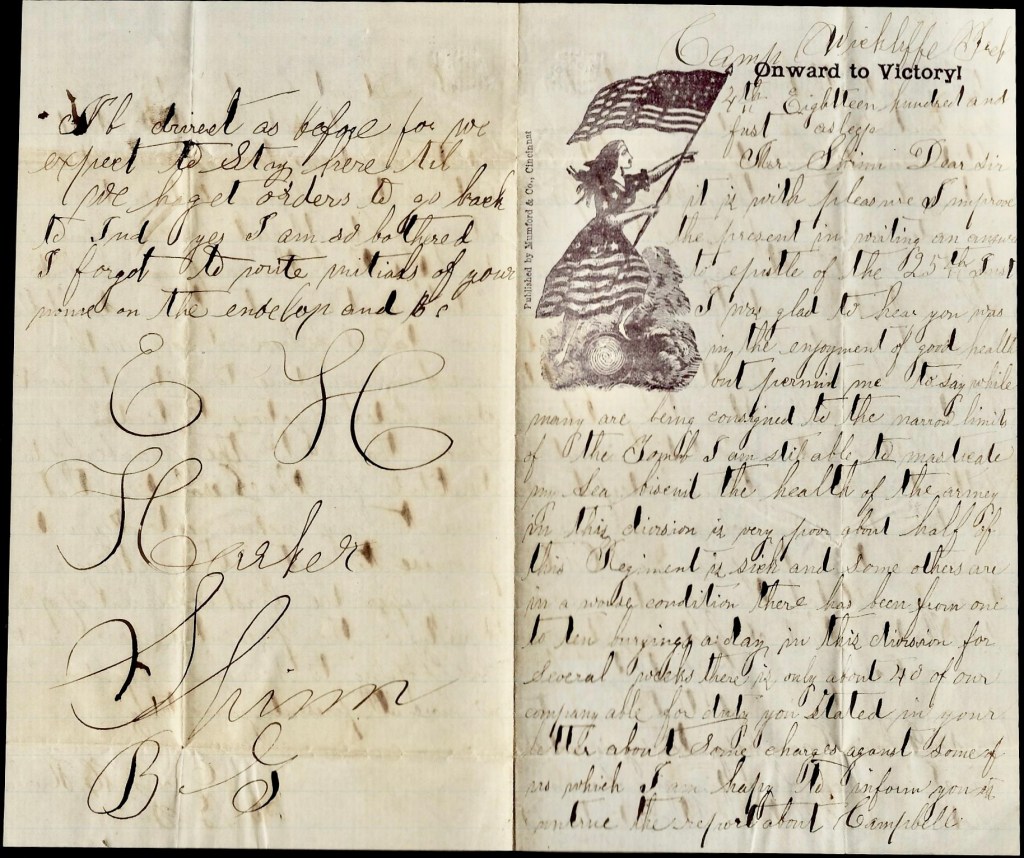 N b direct as before for we
expect to Stay here til
we get orders to go back
to Ind yes I am so bothered
I forgot to write initials of your
name on the envelop and Bc
E H
Harker
Shinn
B G
Camp Wickliffe Feb
Onward to Victory!
Published by Mumford & Co., Cincinnati
4th Eighteen hundred and
fust asleep
Shinn Dear Sir
it is with pleasure I improve
the present in writing an answer
to epistle of the 25th Inst
I was glad to hear you was
in the enjoyment of good health
but permit me to say while
many are being consigned to the narrow limits
of the Tomb I am stil able to masticate
my Sea biscuit the health of the armey
in this division is very poor about half of
this Regiment is sick and some others are
in a worse condition there has been from one
to ten buryings a day in this division for
several weeks there is only about 40 of our
company able for duty you stated in your
letter about some charges against some of
us which I am happy to inform you is
untrue the report about Campbell